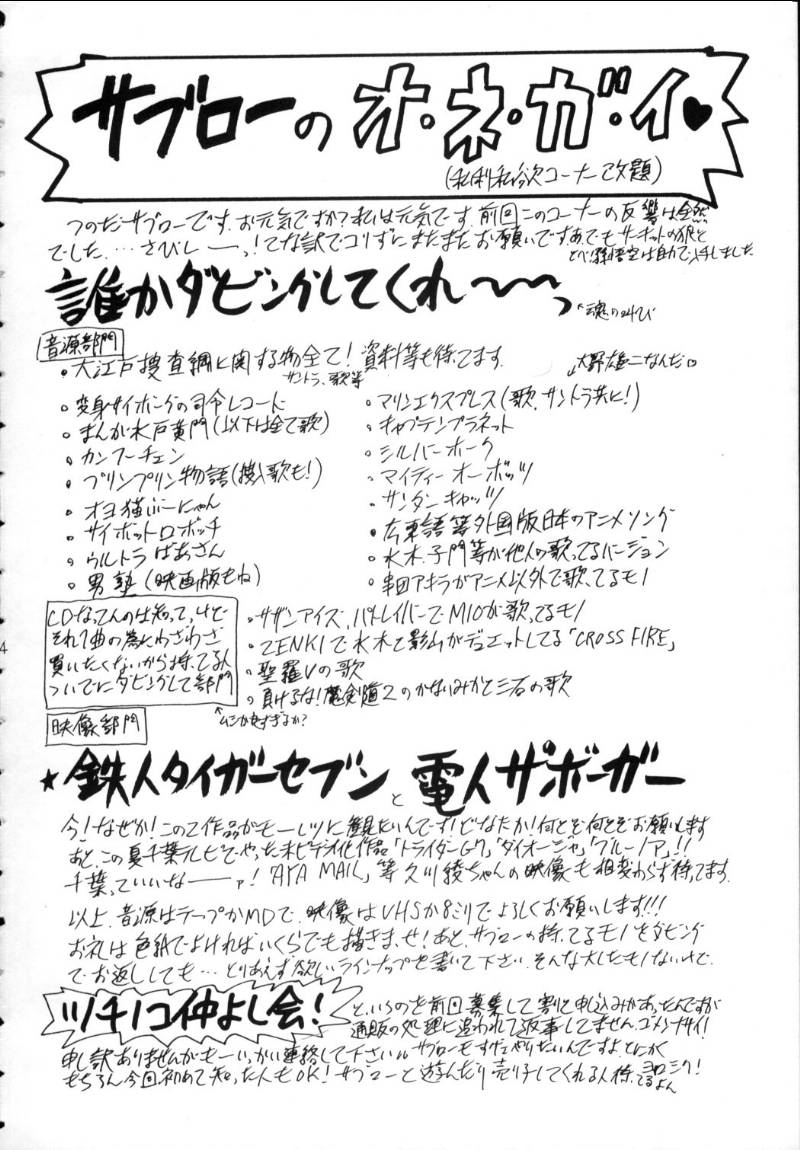 サブローのオ・ネ・ガ・イ♥
(私利私欲コーナー改題)
つのだサブローです。お元気ですか?私は元気です。前回このコーナーの反響は全然
でした....さびしーーっ!てな訳でコリずにまたまたお願いです。あ、でもサーキットの狼と
悟空は自力で入手しました。
誰かダビングしてくれ〜〜〜っ
↖魂の叫び
音源部門
・大江戸捜査網に関する物全て!資料等も待ってます。
サントラ、歌等
大野雄二なんだ♡
・変身サイボーグの司令レコード
・まんが水戸黄門(以下は全て歌)
・カンフーチェン
・プリンプリン物語(挿入歌も!)
・オヨ猫ぶーにゃん
・サイボットロボッチ
・ウルトラばあさん
・男塾(映画版もね)
・マリンエクスプレス(歌、サントラ共に!)
・キャプテンプラネット
・シルバーホーク
・マイティーオーボッツ
・サンダーキャッツ
・広東語等外国版日本のアニメソング
・水木、子門等が他人の歌ってるバージョン
・串田アキラがアニメ以外で歌ってるモノ
CDなってんのは知ってっけど
それ1曲の為にわざわざ
買いたくないから持ってる人
ついでにダビングして部門
↖ムシが良すぎるか?
・サザンアイズ、パトレイバーでMIOが歌ってるモノ
・ZENKIで水木と影山がデュエットしてる「CROSS FIRE」
・聖羅Vの歌
・負けるな!魔剣道2のかないみかと三石の歌
映像部門
★鉄人タイガーセブンと電人ザボーガー
今!なぜか!この2作品がモーレツに観たいんです!どなたか!何とぞ何とぞお願いします
あと、この夏千葉テレビでやった未ビデオ化作品「トライダーG7」、「ダイオージャ」、「グルーノア」!!
千葉っていいなーーァ!「AYA MAIL」等久川綾ちゃんの映像も相変わらず待ってます。
以上、音源はテープかMDで、映像はVHSか8ミリでよろしくお願いします!!!
お礼は色紙でよければいくらでも描きまっせ!あと、サブローの持ってるモノをダビング
でお返ししても…とりあえず欲しいラインナップを書いて下さい。そんな大したモノないけど。
ツチノコ仲よし会!
というのを前回募集して割と申込みがあったんですが
通販の処理に追われて返事してません。ゴメンナサイ!
申し訳ありませんがもーいっかい連絡して下さい。サブローもすげェやりたいんですよ、とにかく
もちろん今回初めて知った人もOK!サブローと遊んだり売り子してくれる人待ってるよん
ヨロシク!
4